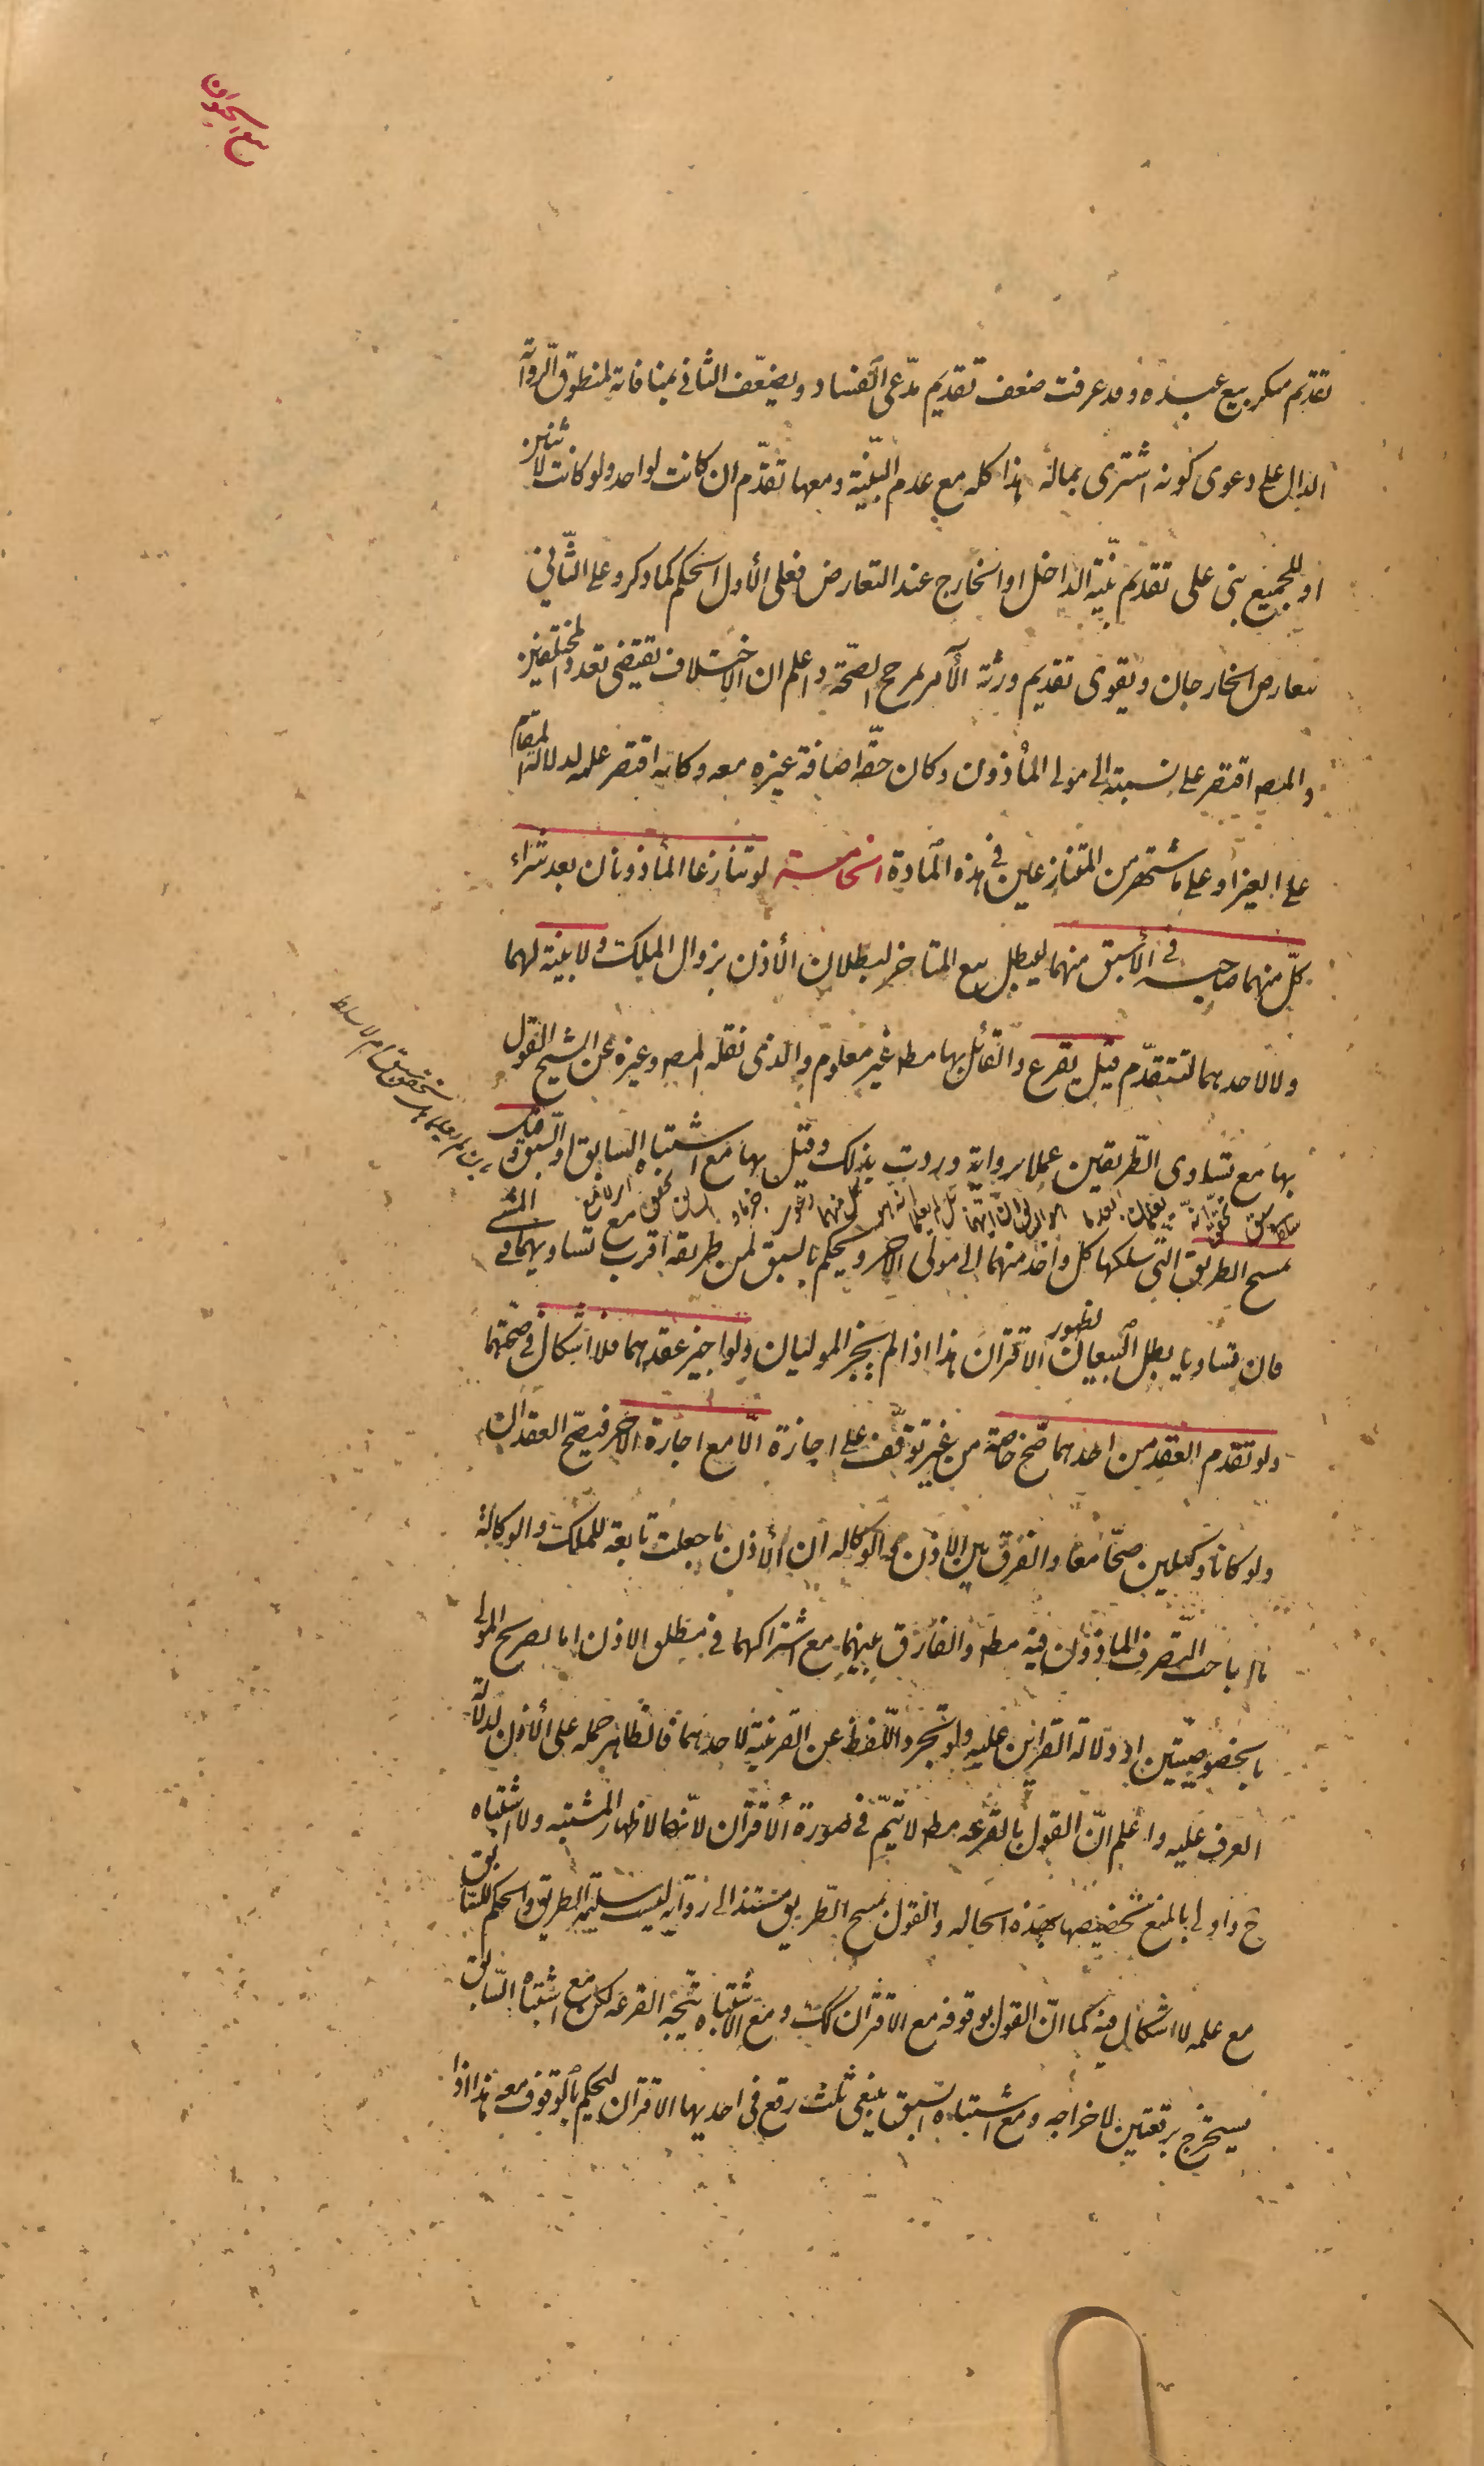 بيع الحيوان
تقديم منكر بيع عبده وقد عرفت ضعف تقديم مدّعى الفساد ويضعّف الثانى بمنافاته لمنطوق الرواية
الدال على دعوى كونه اشترى بماله هذا كله مع عدم البيّنة ومعها تقدّم ان كانت لواحد ولو كانت لاثنين
او للجميع بنى على تقديم بيّنة الداخل او الخارج عند التعارض فعلى الأول الحكم كما ذكر وعلى الثّانى
يتعارض الخارجان ويقوى تقديم ورثة الآمر لمرجح الصحّة واعلم ان الاختلاف يقتضى تعدد المختلفين
والمصه اقتصر على نسبته الى مولى المأذون وكان حقّه اضافة غيره معه وكانه اقتصر عليه لدلالة المقام
على الغير او على ما اشتهر من المتنازعين فى هذه المادة الخامسة لو تنازعا المأذونان بعد شراء
كلّ منهما صاحبه فى الأسبق منهما ليبطل بيع المتاخر لبطلان الأذن بزوال الملك ولا بيّنة لهما
ولا لاحدهما لتتقدّم قيل يقرع والقائل بها مطه غير معلوم والذى نقله المصه وغيره عن الشيخ القول
بها مع تساوى الطّريقين عملا برواية وردت بذلك وقيل بها مع اشتباه السابق او السبق وقيل
يمسح الطريق التى سلكها كل واحد منهما الى مولى الاخر ويحكم بالسبق لمن طريقه اقرب مع تساويهما فى المشى
فان تساويا بطل البيعان لظهور الاقتران هذا اذا لم يجز الموليان ولو اجيز عقدهما فلا اشكال فى صحّتهما
ولو تقدم العقد من احدهما صّح خاصة من غير توقّف على اجازة الّا مع اجازة الاخر فيصّح العقدان
ولو كانا وكيلين صحّا معا والفرق بين الاذن والوكاله ان الأذن ما جعلت تابعة للملك والوكالة
ما اباحت التصرف الماذون فيه مطه والفارق بينهما مع اشتراكهما فى مطلق الاذن اما تصريح المولى
بالخصوصيّتين او دلالة القراين عليه ولو تجرد اللّفظ عن القرينة لاحدهما فالظاهر حمله على الأذن لدلالة
العرف عليه واعلم انّ القول بالقرعه مطه لا تتمّ فى صورة الأقتران لانّها لاظهار المشتبه ولا اشتباه
ح واولى بالمنع تخصيصها بهذه الحاله والقول بمسح الطّريق مستند الى رواية ليست سليمة الطريق والحكم للسّابق
مع علمه لا اشكال فيه كما انّ القول بوقوفه مع الاقتران كك ومع الاشتباه تتّجه القرعه لكن مع اشتباه السّابق
يستخرج برقعتين لاخراجه ومع اشتباه السبق ينبغى ثلث رقع فى احديها الاقتران ليحكم بالوقوف معه هذا اذا